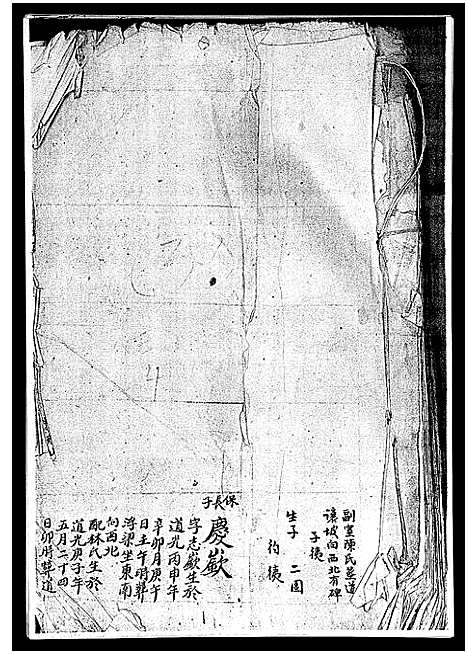 副室陳氏葬道
讓坡向西北有碑
子俵
生子 二園
約俵
保長子
慶歡
字志歡生於
道光丙申年
辛卯月庚午
日主午時葬
浮梁坐東南
向西北
配林氏生於
道光庚子年
五月二十四
日卯時葬道
4